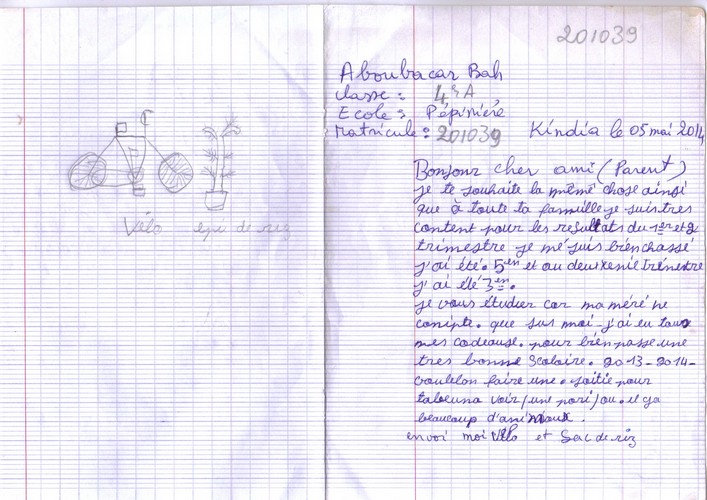 201039
Aboubacar Bah
classe : 4è A
Ecole : Pépinière
Matricule : 201039 Kindia le 05 mai 2014
Bonjour cher ami (Parent)
je te souhaite la même chose ainsi
que à toute ta famille je suis tres
content pour les resultats du 1er et 2
trimestre je mé suis bien chassé
j'ai été. 5em et au deuxenie trénestre
j'ai élé 3em.
je vous étudier car ma méré ne
conipte. que sus moi - j'ai eu tous
mes cadeause. pour bien passe une
tres bonne Scolaire. 2013-2014-
voulelon faire une . soitie pour
voir ou . il ya
beaucoup d'animaux .
envoi moi Vélo et Sac de riz
Vélo epu de riz